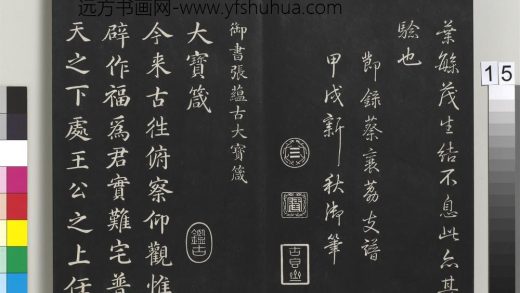 远方书画网-www.yfshuhua.com
葉繁茂生結不息此亦其
驗也
節錄蔡襄荔支譜
甲戌新秋御筆
御書張蘊古大寶箴
大寶箴
今来古往俯察仰觀惟
辟作福為君實難宅普
天之下處王公之上任
鑑古
15